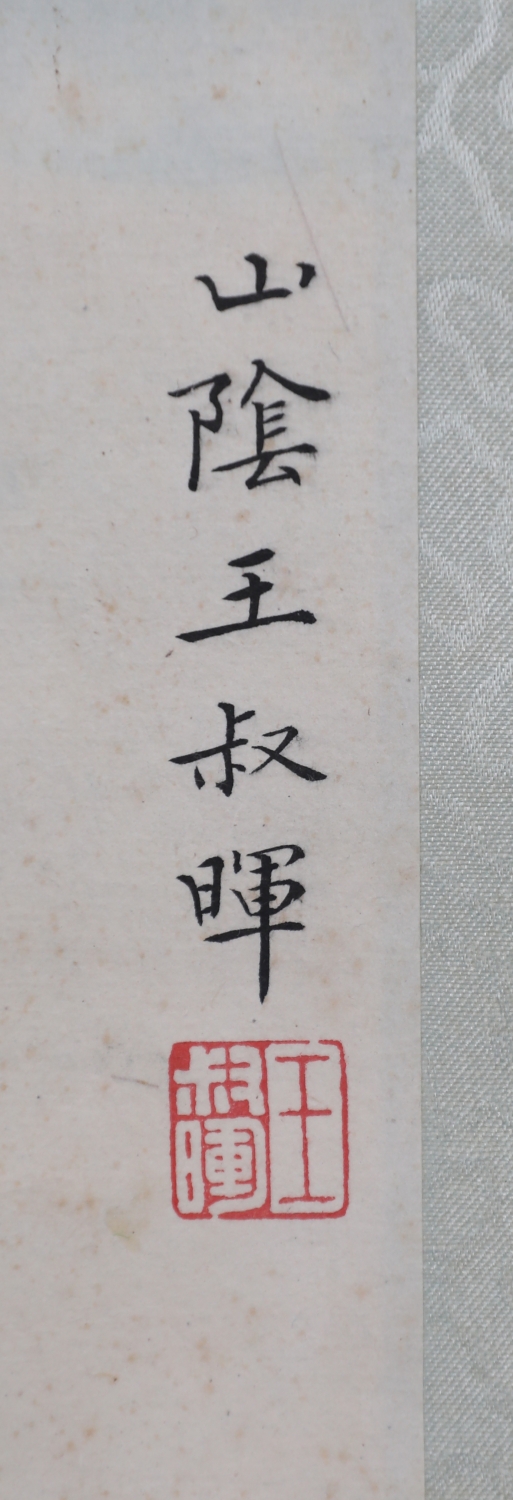 山陰王叔暉
王叔暉